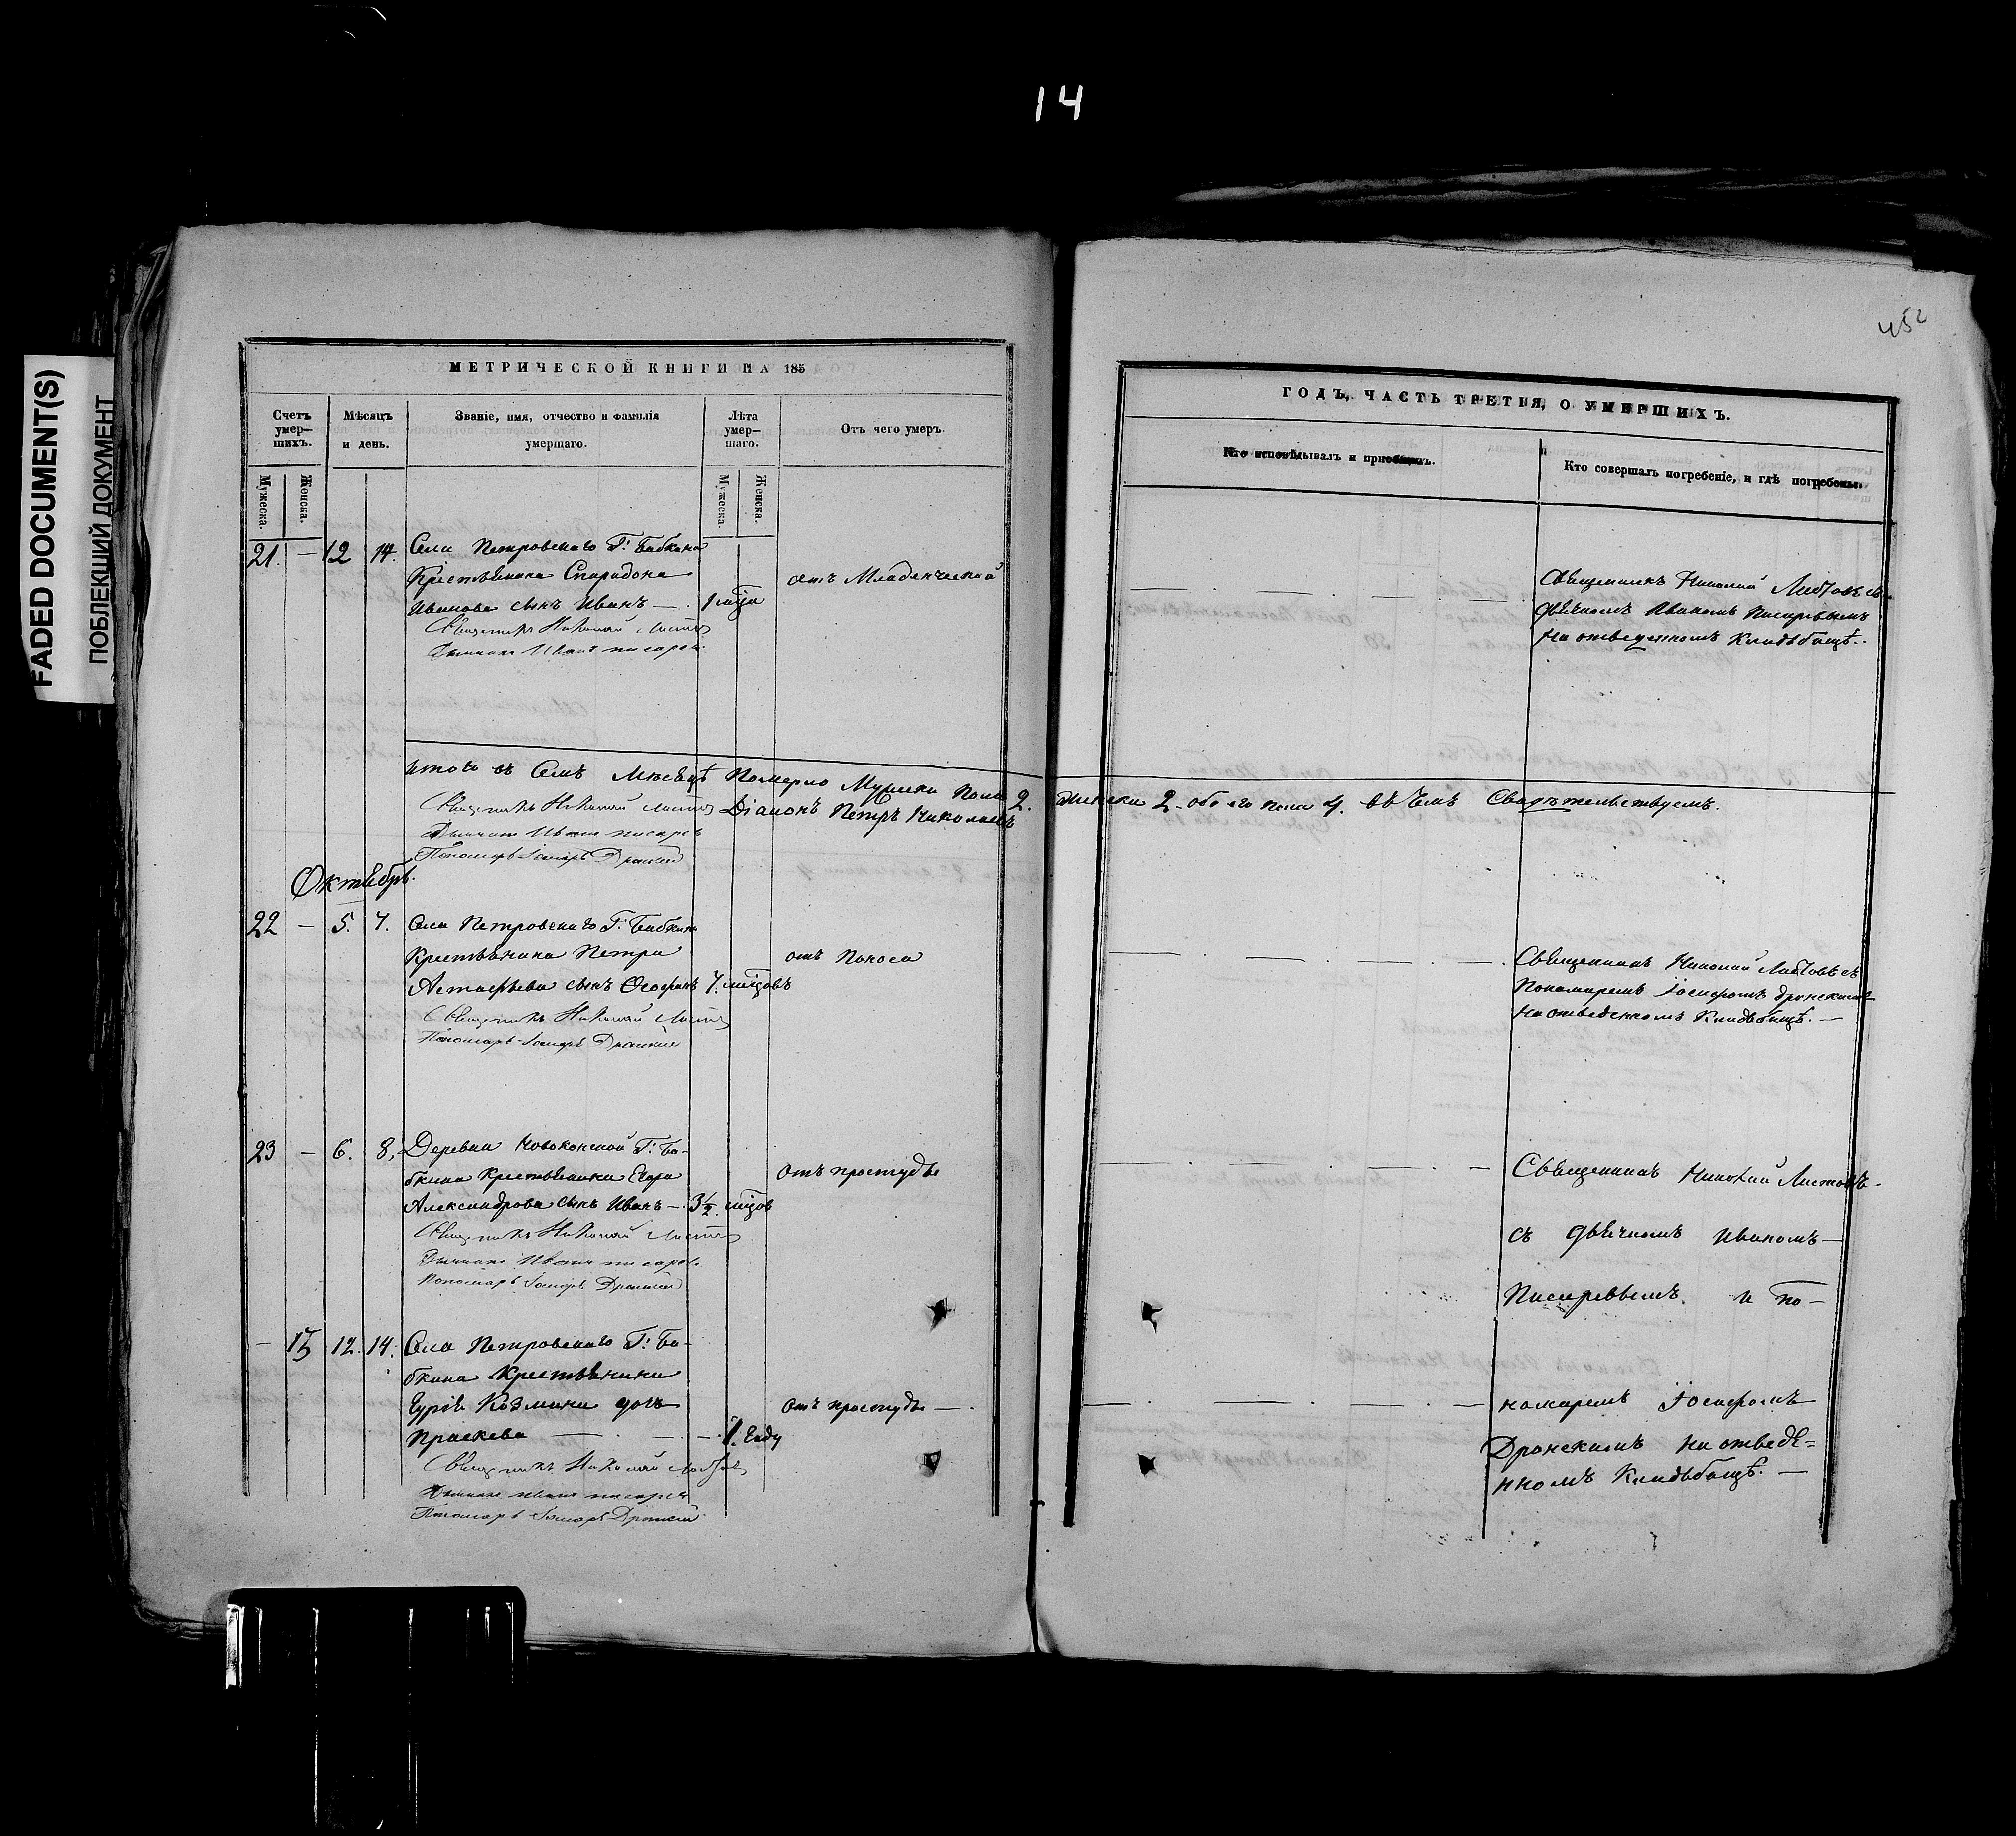 14
FADED DOCUMENT(S)
ПОБЛЕКШИЙ ДОКУМЕНТ
452
МЕТРИЧЕСКОЙ КНИГИ НА 185
Счетъ умер-шихъ.
Мѣсяцъ и день.
Званіе, имя, отчество и фамилія умершаго.
Лѣта умер-шаго.
Отъ чего умеръ.
Мужеска. Женска.
Мужеска. Женска.
21. — 12 14. Села Петровскаго Г: Бабкина
Крестьянина Спиридона
Иванова сынъ Иванъ — 1 мца
отъ Младенческой
Священникъ Николай
Дьячокъ Иванъ Писаревъ
Итого въ Семъ Месяцѣ Померло Мужеска Пола 2.
Священникъ Николай Діаконъ Петръ Николаевъ
Дьячокъ Иванъ Писаревъ
Пономарь Іосифъ Дронскій
Октябрь.
22 — 5. 7. Села Петровскаго Г: Бабкина
Крестьянина Петра
Астафьева сынъ Ѳеофанъ 7. мцовъ
отъ Поноса
Священникъ Николай
Пономарь Іосифъ Дронскій
23 — 6. 8. Деревни Г: Ба-
бкина Крестьянина Егора
Александрова сынъ Иванъ — 3½ мцов
отъ простуды
Священникъ Николай
Дьячокъ Иванъ Писаревъ
Пономарь Іосифъ Дронскій
— 15 12. 14. Села Петровскаго Г: Ба-
бкина Крестьянина
Гурія Козмина дочь
Праскева — 1. Году
отъ простуды —
Священникъ Николай
Дьячокъ Иванъ Писаревъ
Пономарь Іосифъ Дронскій
ГОДЪ, ЧАСТЬ ТРЕТІЯ, О УМЕРШИХЪ.
Кто исповѣдывалъ и пріобщалъ.
Кто совершалъ погребеніе, и гдѣ погребены.
Священникъ Николай Листовъ съ
дьячкомъ Иваномъ Писаревымъ
на отведенномъ Кладбищѣ.
Женска 2. обоего пола 4. въ чемъ Свидѣтельствуемъ.
Священникъ Николай Листовъ съ
Пономаремъ Іосифомъ Дронскимъ
на отведенномъ Кладбищѣ. —
Священникъ Николай Листовъ
съ дьячкомъ Иваномъ —
Писаревымъ и по-
номаремъ Іосифомъ
Дронскимъ на отведе=
нномъ Кладбищѣ. —